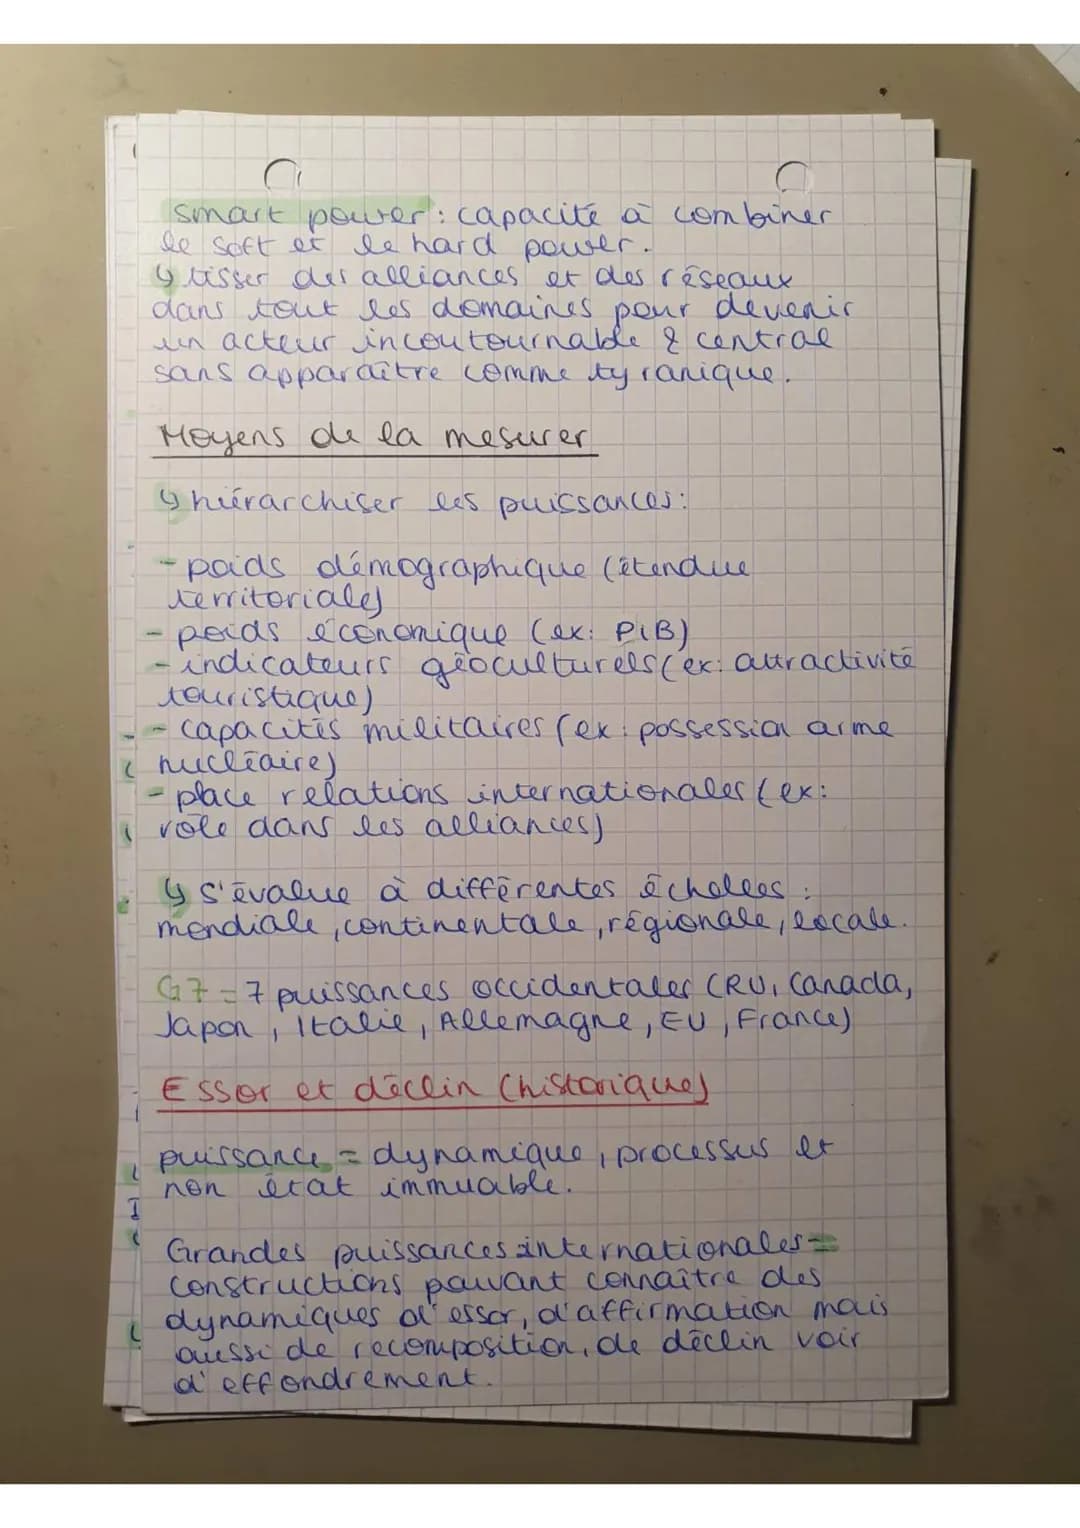 smart power : capacité à combiner
le soft et le hard power.
↳ tisser des alliances et des réseaux
dans tout les domaines pour devenir
un acteur incoutournable & central
sans apparaître comme tyranique.
Moyens de la mesurer
↳ hiérarchiser les puissances :
- poids démographique (étendue
territoriale)
- poids économique (ex: PIB)
- indicateurs géoculturels (ex: attractivité
touristique)
- capacités militaires (ex: possession arme
nucléaire)
- place relations internationales (ex:
rôle dans les alliances)
↳ s'évalue à différentes échelles :
mondiale, continentale, régionale, locale.
G7 = 7 puissances occidentales (RU, Canada,
Japon, Italie, Allemagne, EU, France)
Essor et déclin (historique)
puissance = dynamique, processus et
non état immuable.
Grandes puissances internationales =
constructions pouvant connaître des
dynamiques d'essor, d'affirmation mais
aussi de recomposition, de déclin voir
d'effondrement.